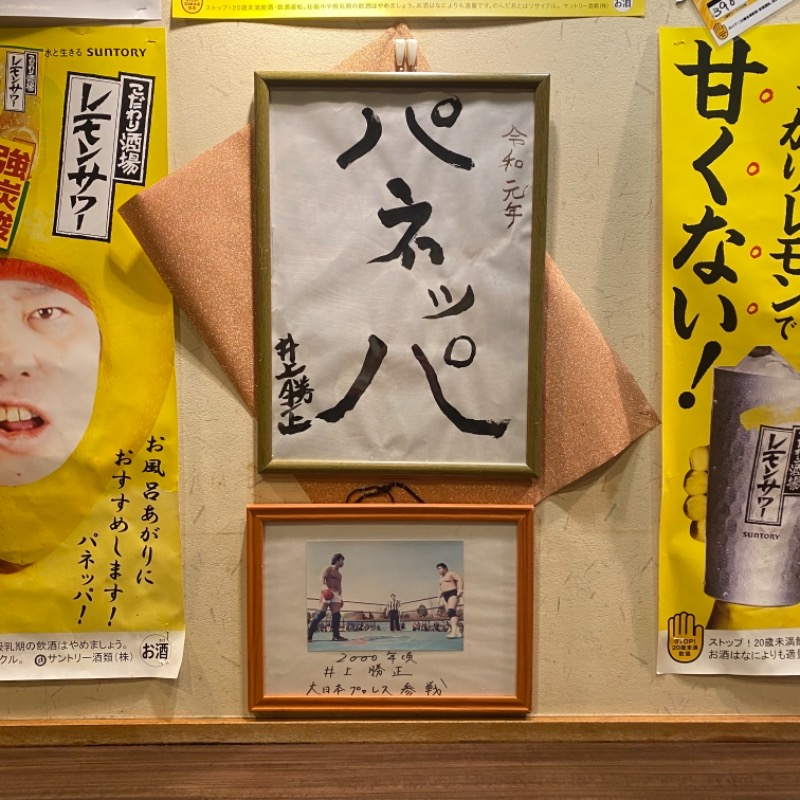 ストップ!20歳未満飲酒・飲酒運転。妊娠中や授乳期の飲酒はやめましょう。お酒はなによりも適量です。のんだあとはリサイクル。サントリー酒類(株)
お酒
水と生きる SUNTORY
こだわり酒場
レモンサワー
こだわり酒場
レモンサワー
強炭酸
お風呂あがりに
おすすめします!
パネッパ!
授乳期の飲酒はやめましょう。
クル。 サントリー酒類(株)
お酒
令和元年
パネッパ
井上勝正
2000年頃
井上勝正
大日本プロレス参戦
かりレモンで
甘くない!
レモンサワー
SUNTORY
STOP!
20歳未満
飲酒
ストップ!20歳未満飲
お酒はなによりも適量